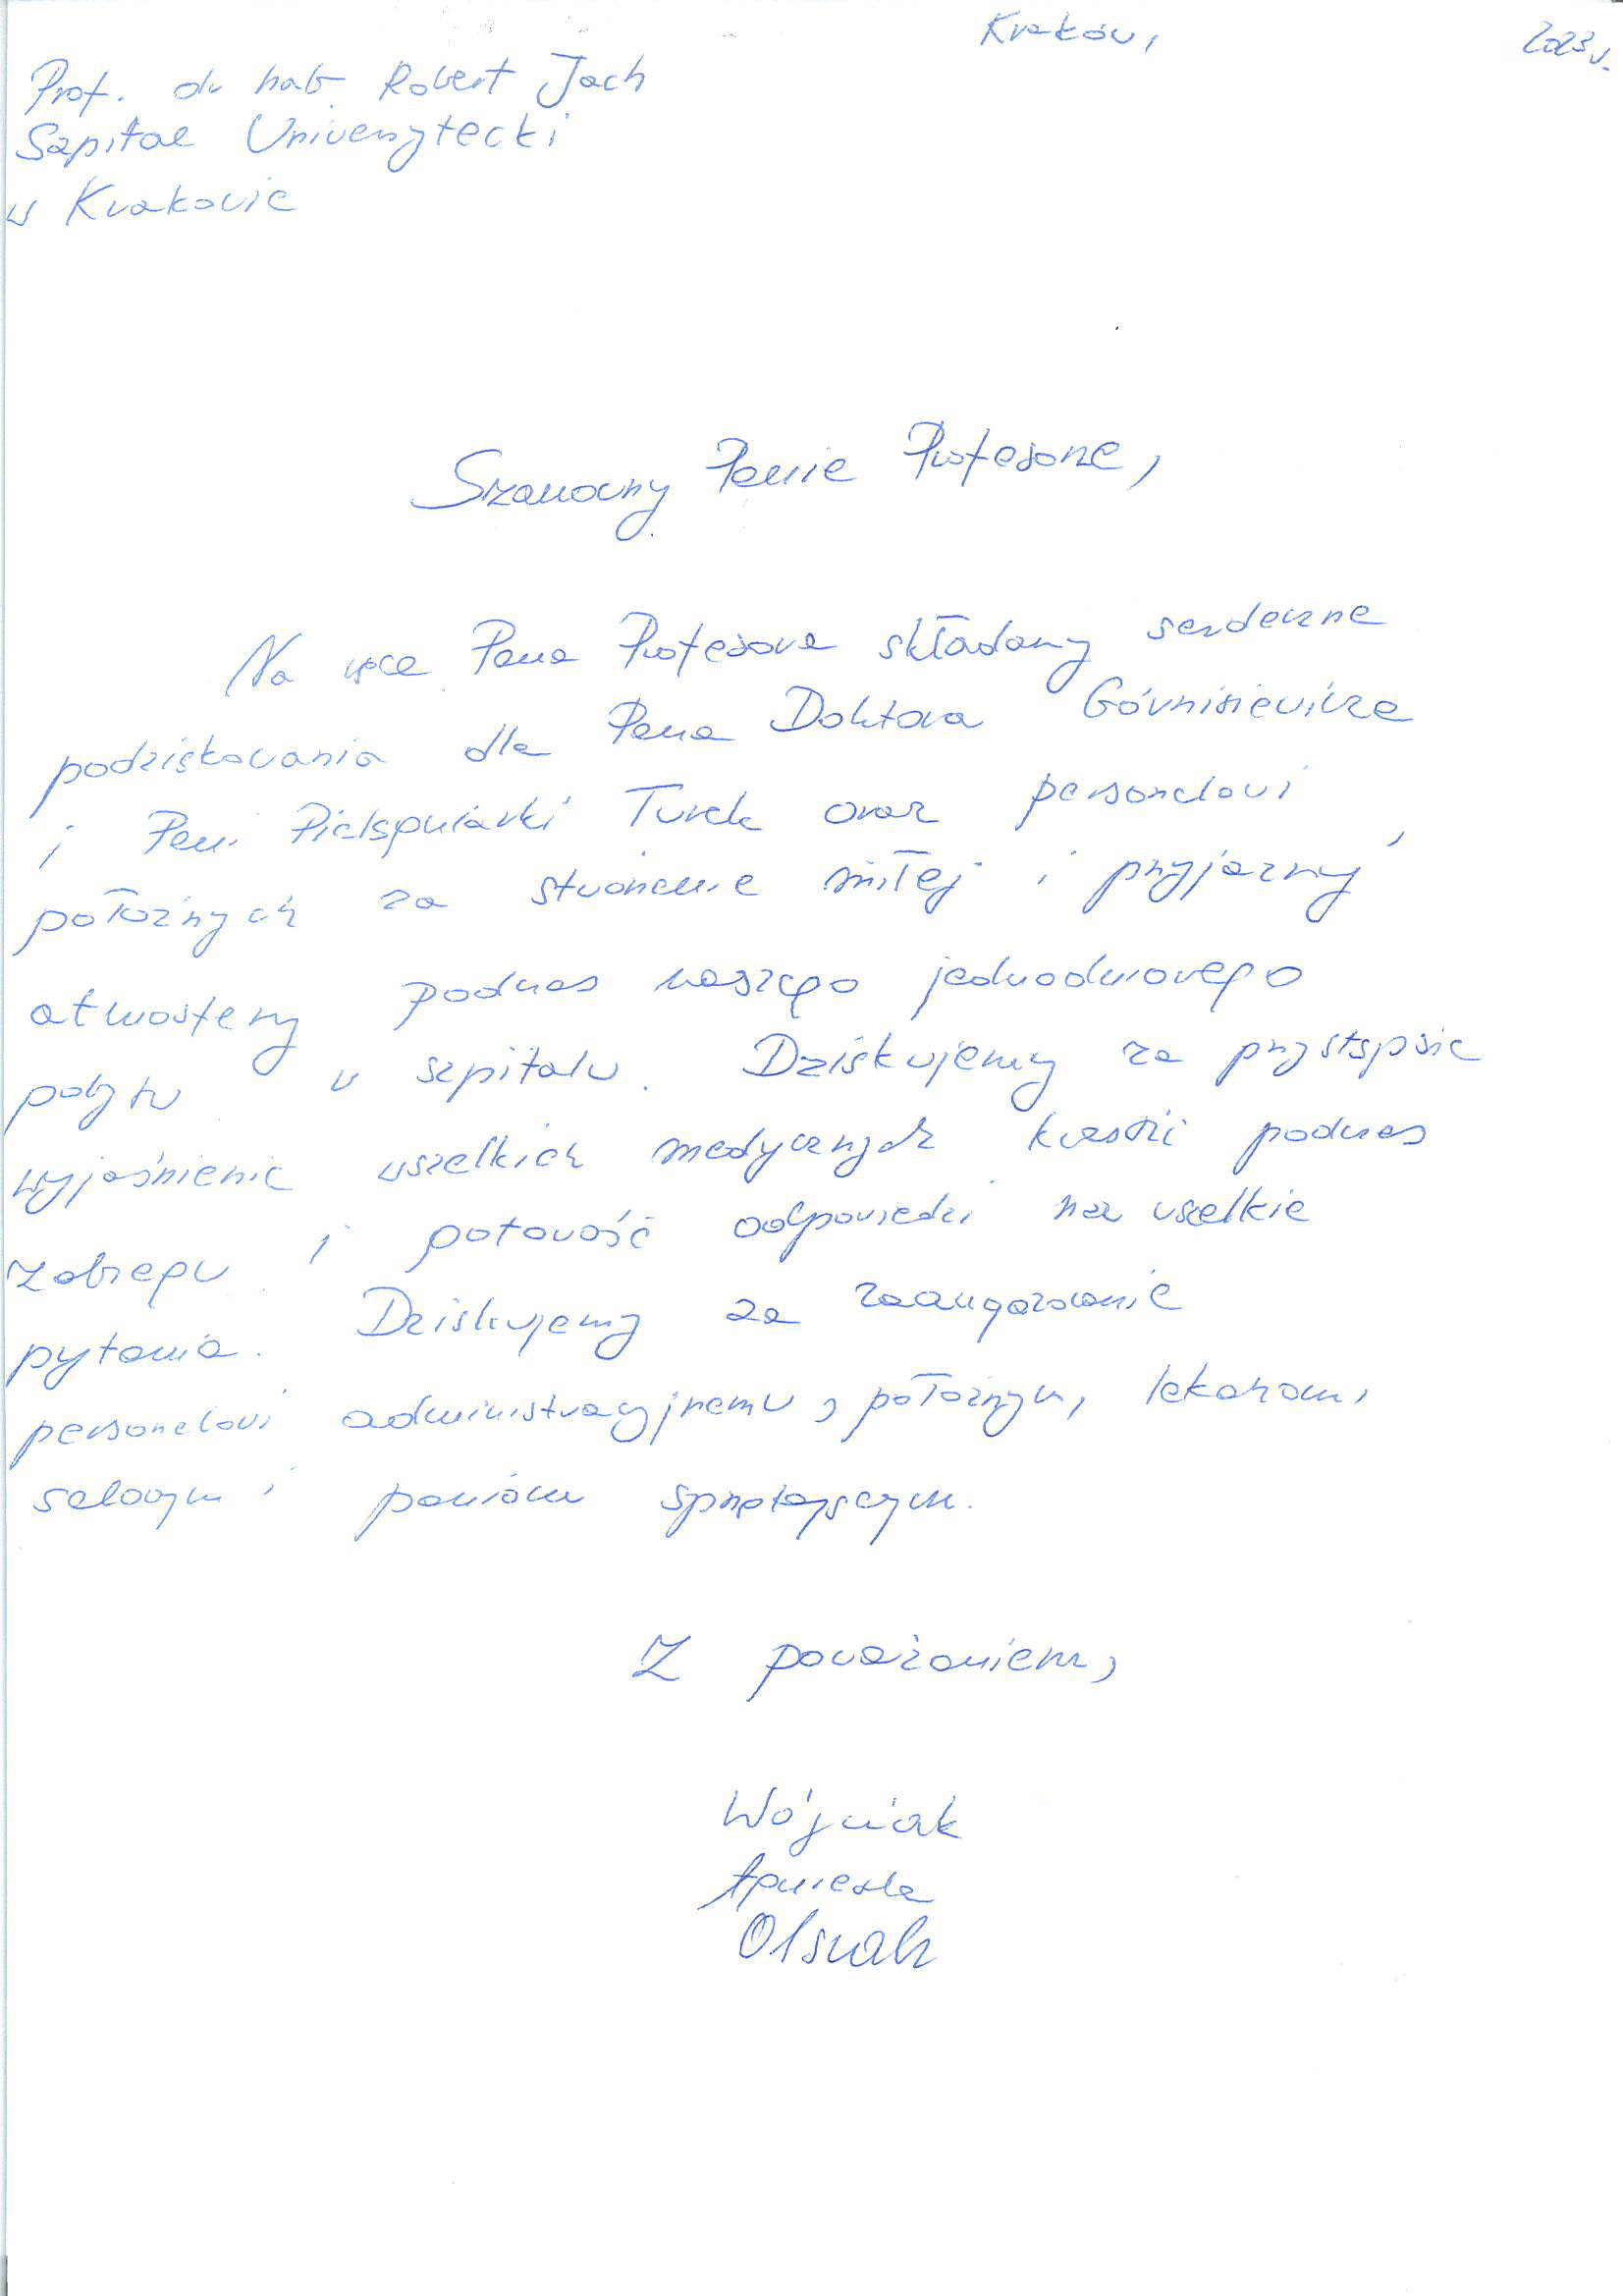 Kraków, 2023 r.
Prof. dr hab. Robert Jach
Szpital Uniwersytecki
w Krakowie
Szanowny Panie Profesorze,
Na ręce Pana Profesora składamy serdeczne
podziękowania dla Pana Doktora Górnisiewicza
i Pani Pielęgniarki Turek oraz personelowi
położnych za stworzenie miłej i przyjaznej
atmosfery podczas naszego jednodniowego
pobytu w szpitalu. Dziękujemy za przystępne
wyjaśnienie wszelkich medycznych kwestii podczas
zabiegu i gotowość odpowiedzi na wszelkie
pytania. Dziękujemy za zaangażowanie
personelowi administracyjnemu, położnym, lekarzom,
salowym i paniom sprzątającym.
Z poważaniem,
Agnieszka